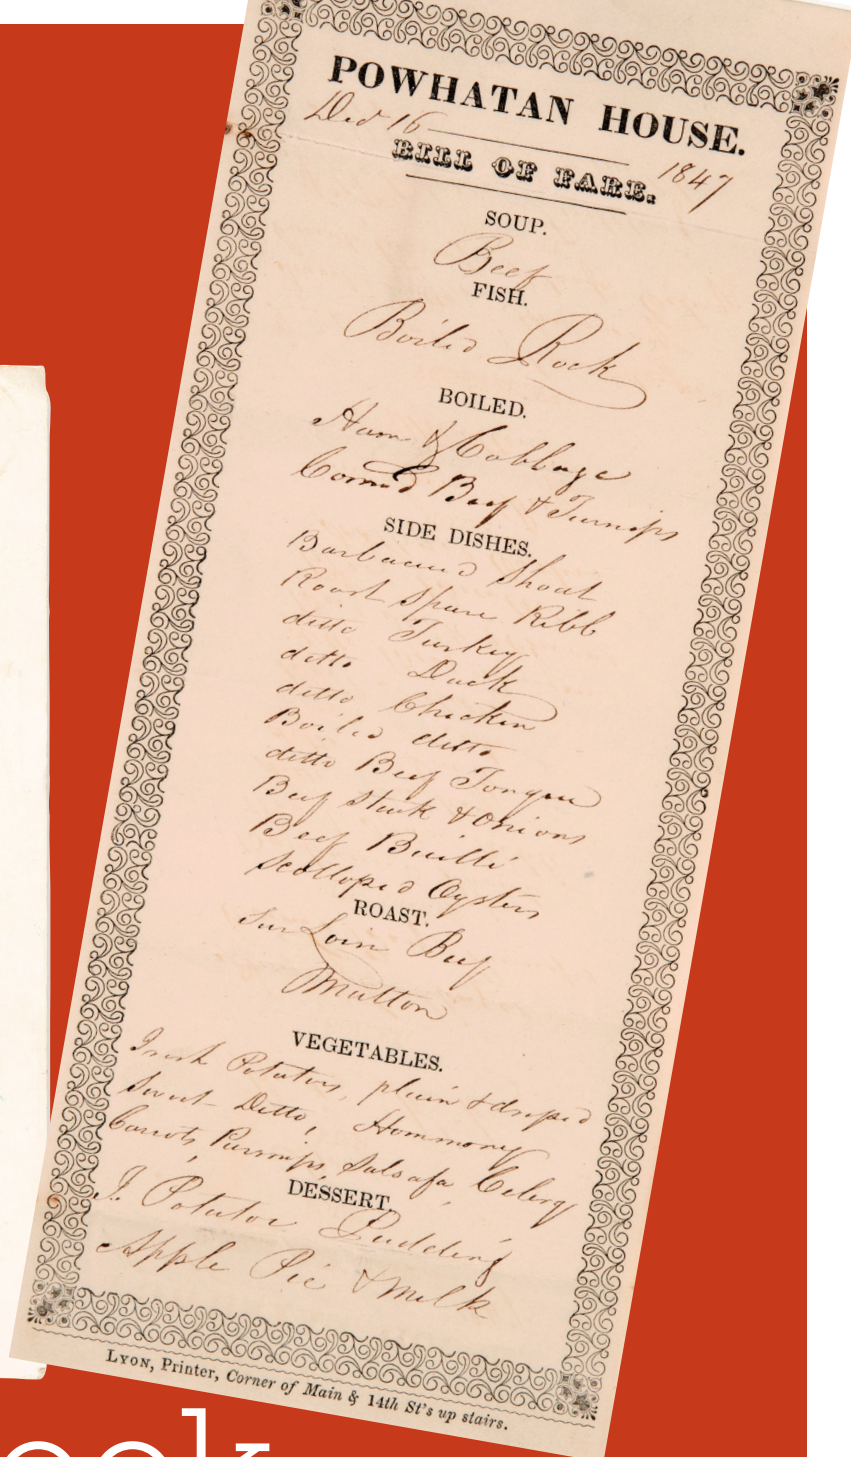 POWHATAN HOUSE.
Decr 16 1847
BILL OF FARE.
SOUP.
Beef
FISH.
Boiled Rock
BOILED.
Ham & Cabbage
Corned Beef & Turnips
SIDE DISHES.
Barbacued Shoat
Roast Spare Ribb
ditto Turkey
ditto Duck
ditto Chicken
Boiled ditto
ditto Beef Tongue
Beef Steak & Onions
Beef Buillé
Scolloped Oysters
ROAST.
Sur Loin Beef
Mutton
VEGETABLES.
Irish Potatoes, plain & dresed
Sweet Ditto, Hommony
Carrots, Parsnips, Salsafa, Celery
DESSERT.
I. Potatoe Pudding
Apple Pie & Milk
LYON, Printer, Corner of Main & 14th St's up stairs.